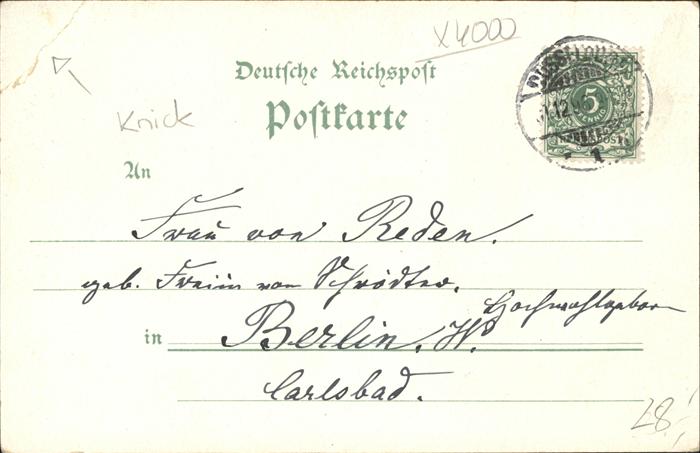 X4000
Deutsche Reichspost
Postkarte
5
1
Knick
An
Frau von Reden.
geb. Freiin von Schrödter.
Hochwohlgeboren
in Berlin. W.
Carlsbad.
28,-